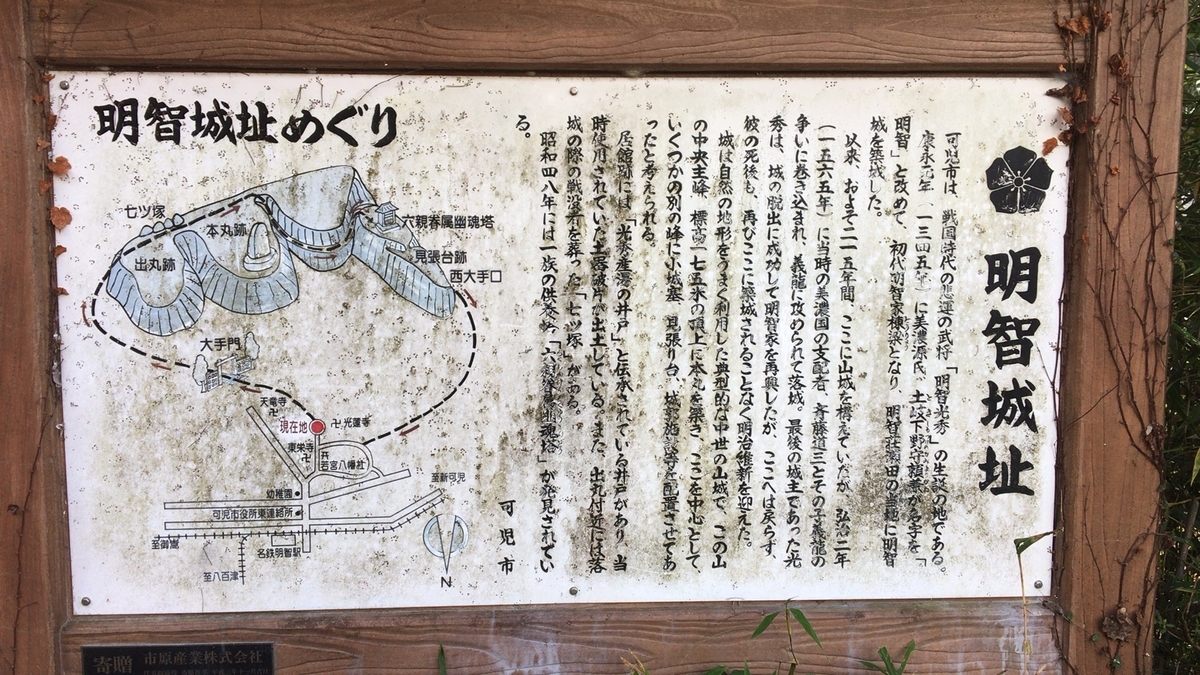 明智城址
可児市は、戦国時代の悲運の武将「明智光秀」の生誕の地である。
康永元年(一三四五年)に美濃源氏、土岐下野守頼兼が名字を「
明智」と改めて、初代明智家棟梁となり 明智荘瀬田の当地に明智
城を築城した。
以来、およそ二一五年間、ここに山城を構えていたが 弘治二年
(一五六五年)に当時の美濃国の支配者、斉藤道三とその子義龍の
争いに巻き込まれ、義龍に攻められて落城。最後の城主であった光
秀は、城の脱出に成功して明智家を再興したが、ここへは戻らず、
彼の死後も、再びここに築城されることなく明治維新を迎えた。
城は自然の地形をうまく利用した典型的な中世の山城で、この山
の中央主峰、標高一七五米の頂上に本丸を築き、ここを中心として
いくつかの別の峰に小城塞、見張り台、城郭施設等を配置させてあ
ったと考えられる。
居館跡には、「光秀産湯の井戸」と伝承されている井戸があり、当
時使用されていた土器破片が出土している。また、出丸付近には落
城の際の戦没者を葬った「七ツ塚」がある。
昭和四八年には一族の供養め「六親眷属幽魂塔」が発見されてい
る。
可児市
明智城址めぐり
七ツ塚
本丸跡
出丸跡
六親眷属幽魂塔
見張台跡
西大手口
大手門
天竜寺
卍
現在地
卍光蓮寺
東栄寺
卍
若宮八幡社
幼稚園
可児市役所東連絡所
至新可児
至御嵩
名鉄明智駅
至八百津
N
寄贈 市原産業株式会社